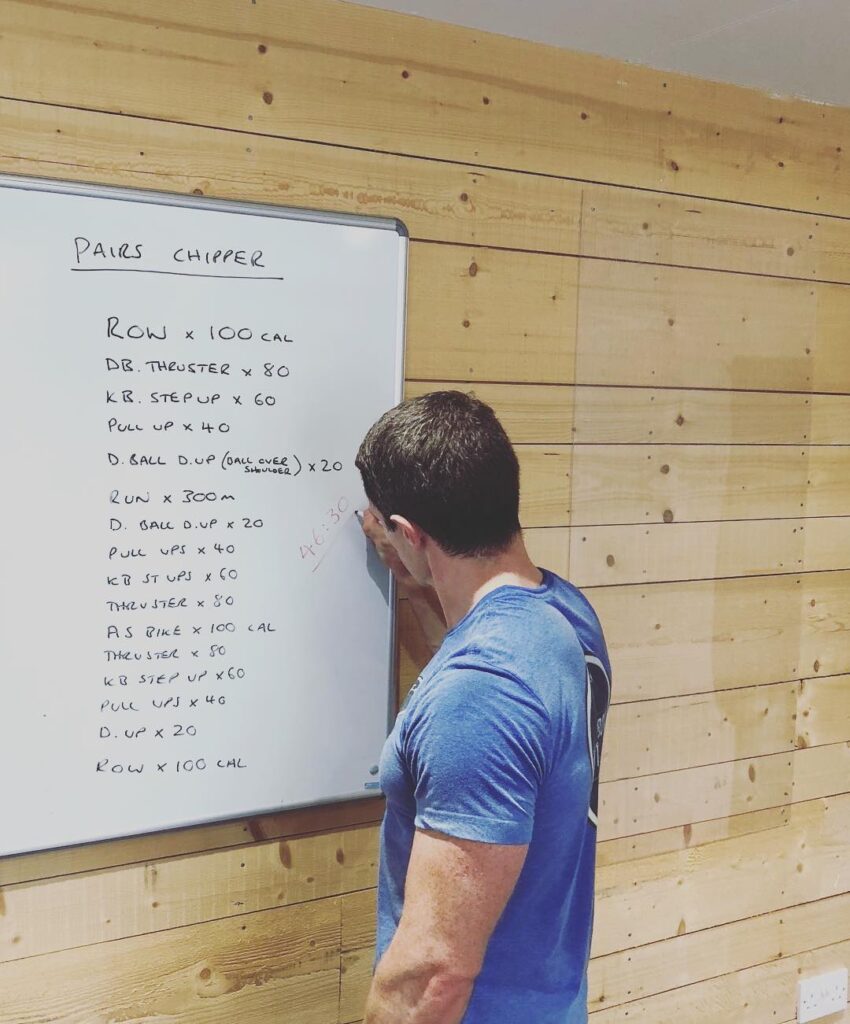 PAIRS CHIPPER
ROW x 100 CAL
DB. THRUSTER x 80
KB. STEP UP x 60
PULL UP x 40
D. BALL D.UP (BALL OVER SHOULDER) x 20
RUN x 300m
D. BALL D.UP x 20
PULL UPS x 40
KB ST UPS x 60
THRUSTER x 80
AS BIKE x 100 CAL
THRUSTER x 80
KB STEP UP x 60
PULL UPS x 40
D. UP x 20
ROW x 100 CAL
46:30